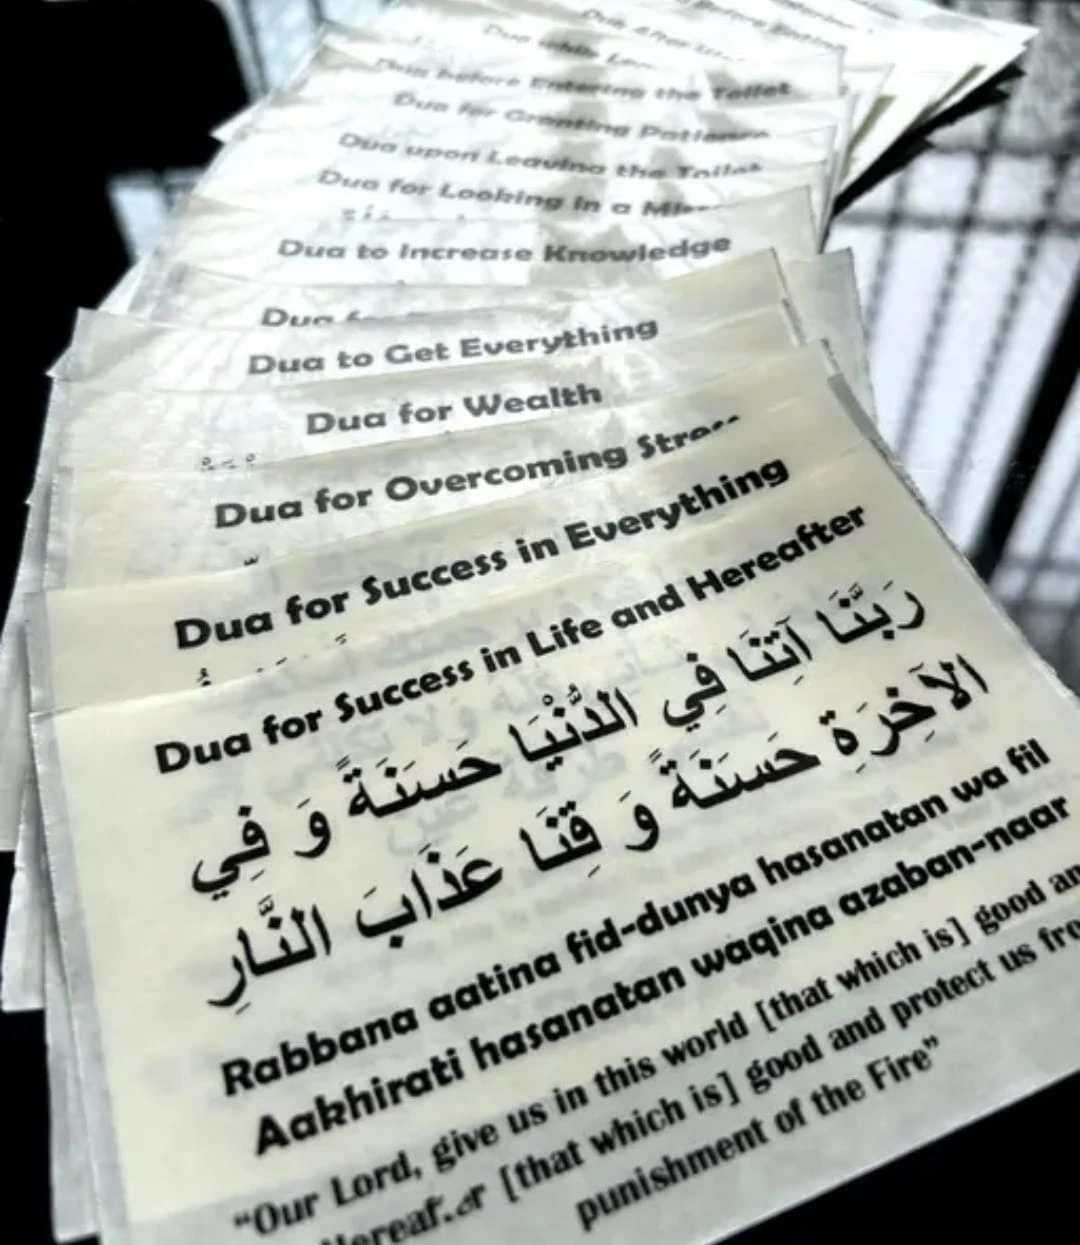 Before Entering
Dua After
Dua while
Dua before Entering the Toilet
Dua for Granting Patience
Dua upon Leaving the Toilet
Dua for Looking in a
Dua to Increase Knowledge
Dua
Dua to Get Everything
Dua for Wealth
Dua for Overcoming Stress
Dua for Success in Everything
Dua for Success in Life and Hereafter
رَبَّنَا آتِنَا فِي الدُّنْيَا حَسَنَةً وَ فِي
الآخِرَةِ حَسَنَةً وَ قِنَا عَذَابَ النَّارِ
Rabbana aatina fid-dunya hasanatan wa fil
Aakhirati hasanatan waqina azaban-naar
“Our Lord, give us in this world [that which is] good an
Hereafter [that which is] good and protect us fro
punishment of the Fire”